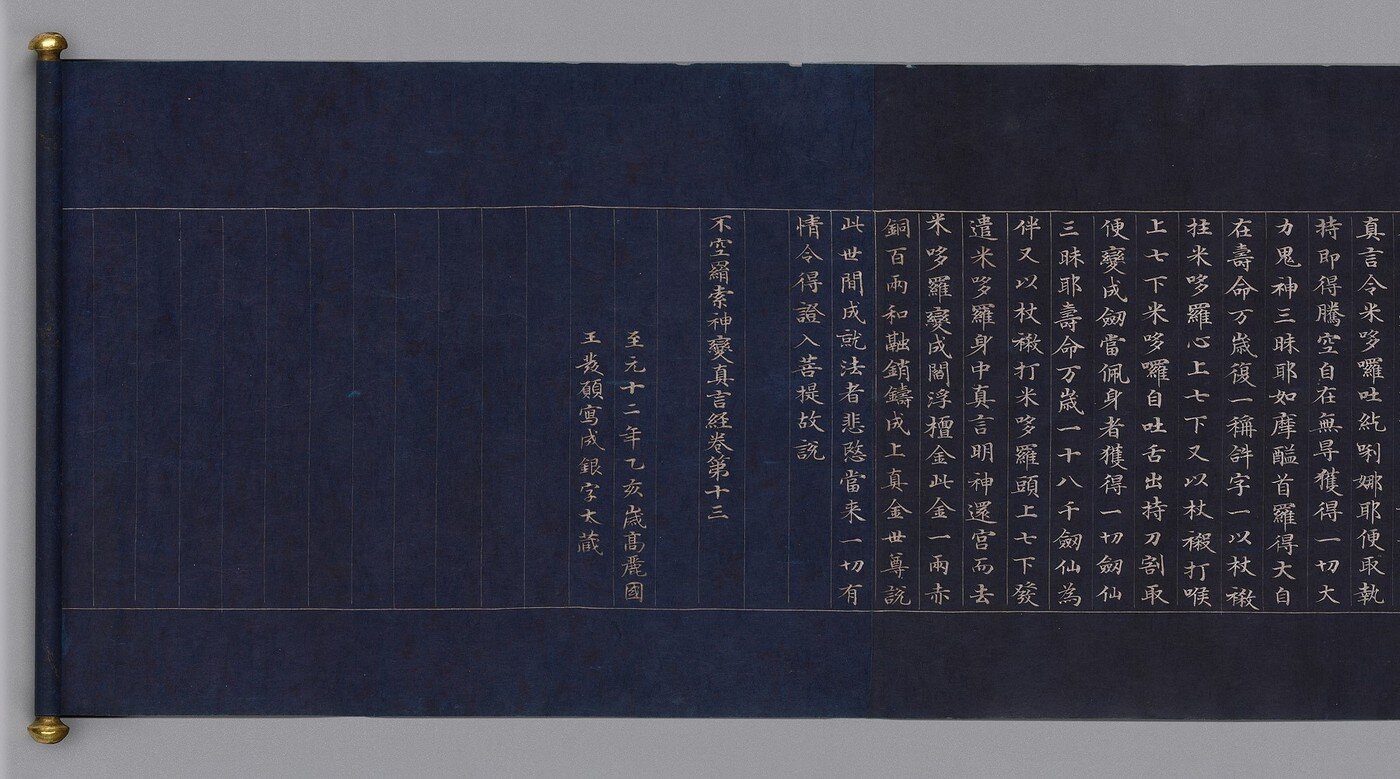 真言令米哆囉吐紇唎娜耶便取執
持即得騰空自在無㝵獲得一切大
力鬼神三昧耶如摩醯首羅得大自
在壽命万歳復一稱𤙖字一以杖撽
拄米哆羅心上七下又以杖撽打喉
上七下米哆囉自吐舌出持刀割取
便變成劒當佩身者獲得一切劒仙
三昧耶壽命万歳一十八千劒仙為
伴又以杖撽打米哆羅頭上七下發
遣米哆羅身中真言明神還宮而去
米哆羅變成閻浮檀金此金一兩赤
銅百兩和融銷鑄成上真金世尊說
此世間成就法者悲愍當来一切有
情令得證入菩提故說
不空羂索神變真言經卷第十三
至元十二年乙亥歳高麗國
王發願寫成銀字大藏